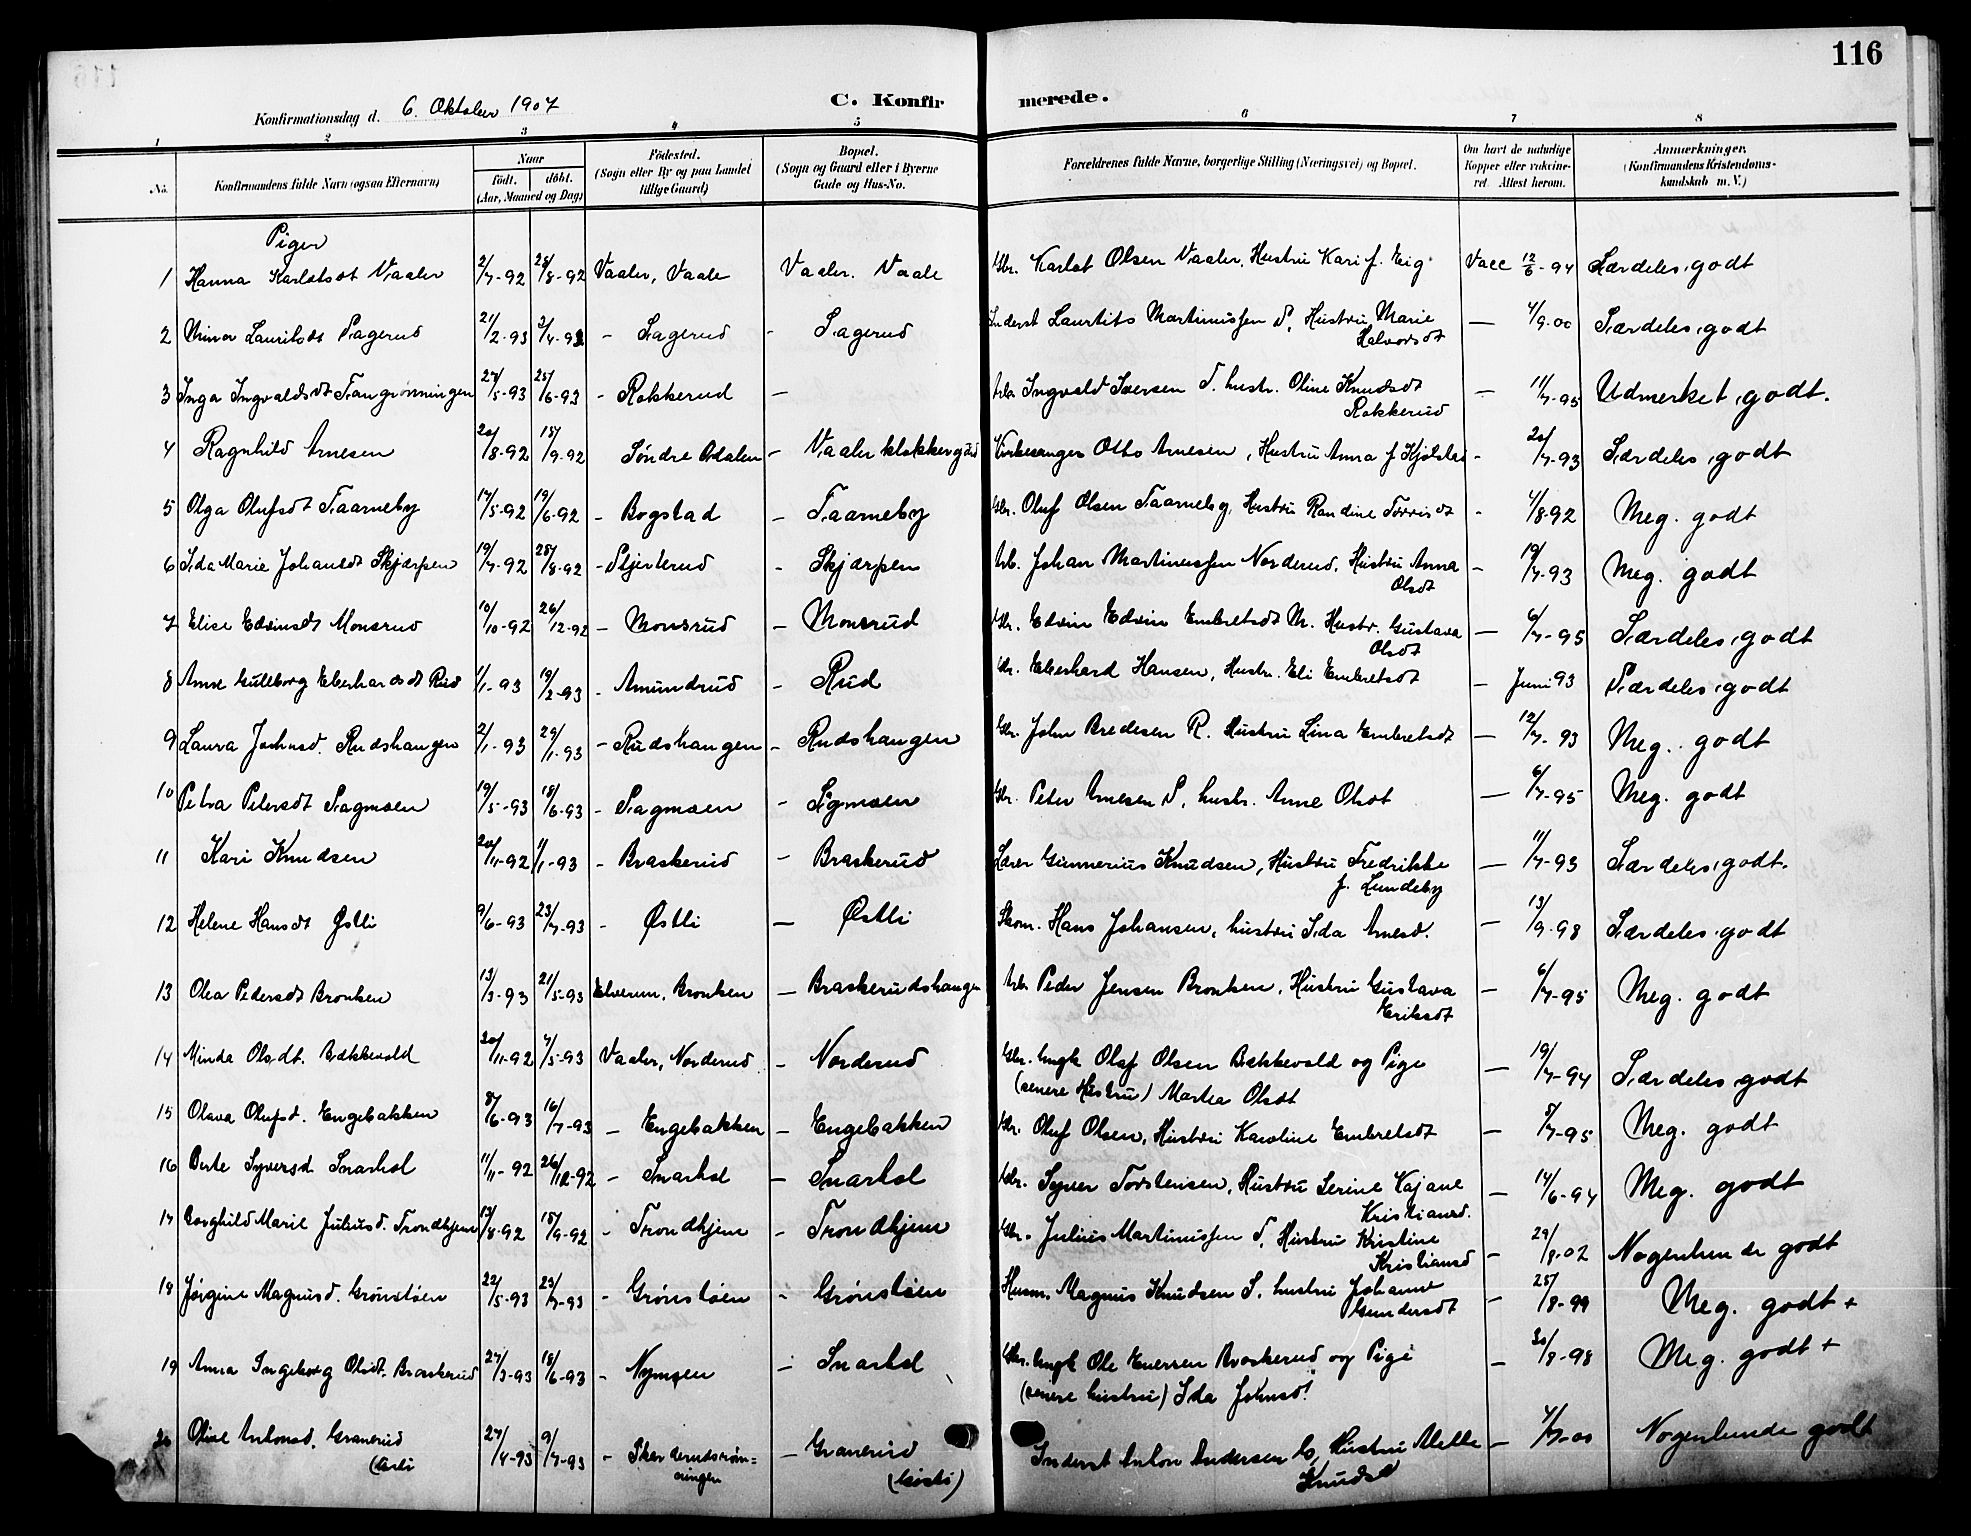 116
Konfirmationsdag d. 6. Oktober 1907
C. Konfirmerede.
1 2 3 4 5 6 7 8
No. Konfirmandens fulde Navn (ogsaa Efternavn) Naar født. døbt. (Aar, Maaned og Dag) Fødested. (Sogn eller By og paa Landet tillige Gaard) Bopæl. (Sogn og Gaard eller i Byerne Gade og Hus-No. Forældrenes fulde Navne, borgerlige Stilling (Næringsvei) og Bopæl. Om havt de naturlige Kopper eller vaccineret. Attest herom. Anmærkninger. (Konfirmandens Kristendomskundskab m. V.)
Piger
1 Hanna Karlstsdt Vaaler 2/7-92 28/8-92 Vaaler, Vaale Vaaler. Vaale Gbr. Karlst Olsen Vaaler, Hustru Kari f. Eig Vacc 12/6-94 Særdeles godt
2 Mina Lauritsdt Sagerud 21/2-93 3/4-93 - Sagerud - Sagerud Inderst Lauritz Martinussen S, Hustru Marie Halvorsdt — 4/9-00 Særdeles godt
3 Inga Ingvaldsdt Trangrønningen 27/5-93 25/6-93 - Rokkerud — Arb. Ingvald Iversen T. hustr. Oline Knudsdt Rokkerud — 11/7-95 Udmerket godt.
4 Ragnhild Arnesen 20/8-92 18/9-92 Søndre Odalen - Vaaler klokkergaard Kirkesanger Otto Arnesen, Hustru Anna f Kjølstad - 20/7-93 Særdeles godt
5 Olga Olufsdt Taarneby 17/5-92 19/6-92 - Bogstad - Taarneby Gbr. Oluf Olsen Taarneby, Hustru Randine Torrisdt - 4/8-92 Meg. godt
6 Ida Marie Johansdt Skjærpen 19/7-92 28/8-92 - Stjerterud - Skjærpen Arb. Johan Martinussen Norderud, Hustru Anna Olsdt - 19/7-93 Meg. godt
7 Elise Edvinsdt Monsrud 10/10-92 26/12-92 - Monsrud - Monsrud Gbr. Edvin Edvin Embretsdt M. Hustr. Gustava Olsdt — 6/7-95 Særdeles godt
8 Anne Gulborg Eberhardsdt Rud 1/1-93 19/2-93 - Amundrud - Rud Gbr. Eberhard Hansen, Hustr. Eli Embretsdt — Juni 93 Særdeles godt
9 Laura Johnsd. Rudshangen 2/1-93 29/1-93 - Rudshangen - Rudshangen Gbr. John Bredesen R. Hustru Lina Embretsdt — 12/7-93 Meg. godt
10 Petra Petersdt Sagmoen 19/5-93 18/6-93 - Sagmoen - Sigmoen Gbr. Peter Arnesen S, hustr. Anne Olsdt — 6/7-95 Meg. godt
11 Kari Knudsen 20/11-92 1/1-93 - Braskerud - Braskerud Lærer Gunnerius Knudsen, Hustru Fredrikke f. Lundeby — 11/7-93 Særdeles godt.
12 Helene Hansdt Østli 9/6-93 23/7-93 - Østli — Østli Skom. Hans Johansen, hustru Ida Arnesd. — 13/9-98 Særdeles godt
13 Olea Pedersdt Bronken 13/3-93 21/5-93 Elverum, Bronken — Braskerudshangen Arb. Peder Jensen Bronken, Hustru Gustava Eriksdt — 6/7-95 Meg. godt
14 Minda Olsdt. Bækkevold 20/11-92 7/5-93 Vaaler, Norderud - Norderud Gbr. Ungk Olaf Olsen Bækkevold og Pige (senere Hustru) Martea Olsdt — 19/7-94 Særdeles godt
15 Olava Olufsd. Engebakken 8/6-93 16/7-93 - Engebakken - Engebakken Gbr. Oluf Olsen, Hustru Karoline Embretsdt — 8/7-95 Meg. godt
16 Berte Syversd Snarhol 11/11-92 26/12-92 - Snarhol - Snarhol Gbr. Syver Torstensen, Hustru Serine Kajane Kristiansd. — 14/6-94 Meg. godt
17 Borghild Marie Juliusd. Trondhjem 13/8-92 18/9-92 - Trondhjem - Trondhjem Gbr. Julius Martinussen T, Hustru Kristine Kristiansd — 29/8-02 Nogenlunde godt
18 Jørgine Magnusd. Grønstøen 22/5-93 23/7-93 - Grønstøen - Grønstøen Husm. Magnus Knudsen S. hustru Johanne Gundersdt — 25/8-99 Meg. godt +
19 Anna Ingeborg Olsdt. Braskerud 27/3-93 18/6-93 - Nymoen - Snarhol Gbr. Ungk Ole Enersen Braskerud og Pige (senere hustru) Ida Johnsd. — 30/8-98 Meg. godt +
20 Oline Antonsd. Granerud 27/4-93 9/7-93 - Granerud Inderst Anton Andersen G, Hustru Mette Knudsd — 4/7-00 Nogenlunde godt